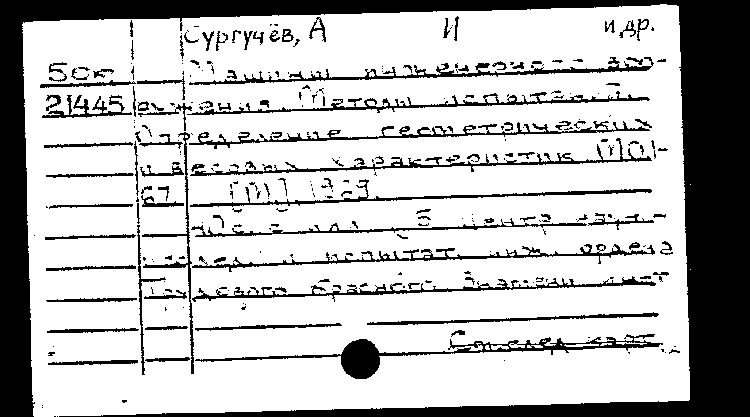 Сургучёв, А И и др.
5Ск Машины инженерного воо-
21445 ружения. Методы испытаний.
Определение геометрических
и весовых характеристик МО1-
67 [М], 1969.
40с. с илл 25 Центр науч.-
исслед. и испытат. инж. ордена
Трудового Красного Знамени инст
См. след. карт.